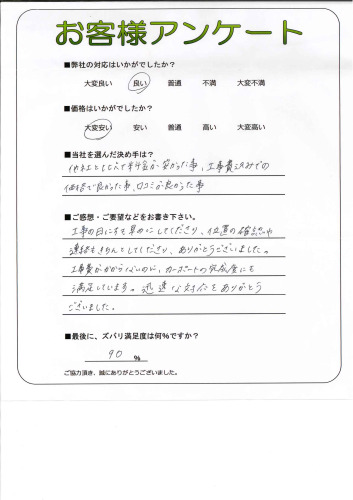 お客様アンケート
■弊社の対応はいかがでしたか?
大変良い 良い 普通 不満 大変不満
■価格はいかがでしたか?
大変安い 安い 普通 高い 大変高い
■当社を選んだ決め手は?
他社とくらべて料金が安かった事、工事費込みでの
価格で良かった事、口コミが良かった事
■ご感想・ご要望などをお書き下さい。
工事の日にすぐ
してくださり、位置の確認や
連絡もきちんとしてくださり、ありがとうございました。
工事費がかからないのに、カーポートの完成度にも
満足しています。迅速な対応をありがとう
ございました。
■最後に、ズバリ満足度は何%ですか?
90 %
ご協力頂き、誠にありがとうございました。